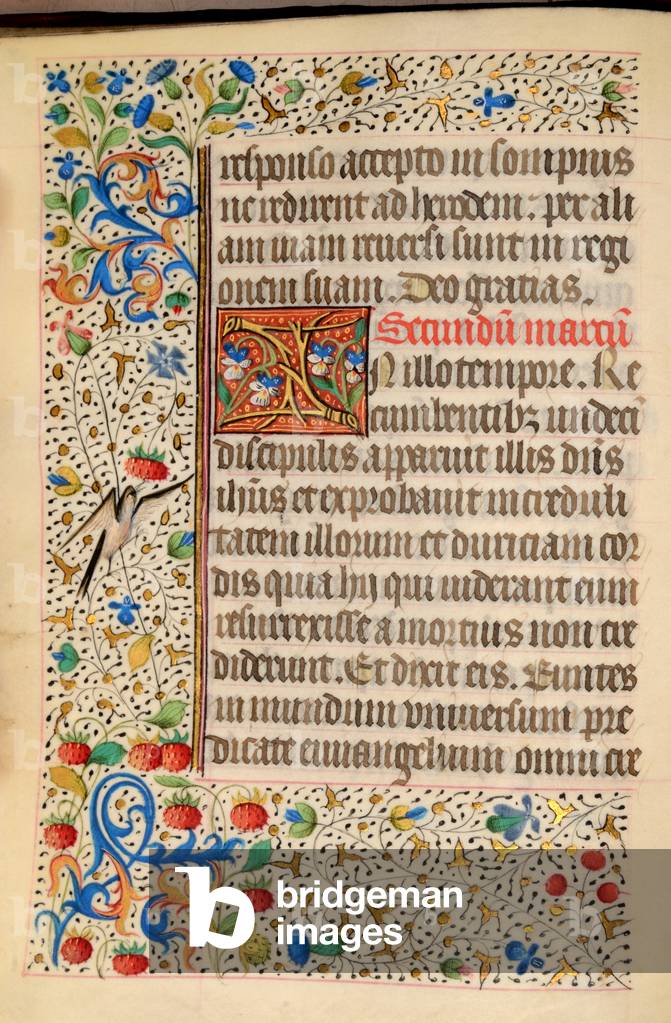 responso accepto in sompnis
ne redirent ad herodem. per ali
am uiam reuersi sunt in regi
onem suam. Deo gratias.
Secundū marcū
IN illo tempore. Re
cumbentibꝫ undecī
discipulis apparuit illis dn̄s
ihūs et exprobauit increduli
tatem illorum et duriciam cor
dis quia hij qui uiderant eum
resurrexisse a mortuis non cre
diderunt. Et dixit eis. Euntes
in mundum vniuersum pre
dicate euuangelium omni cre
b bridgeman
images